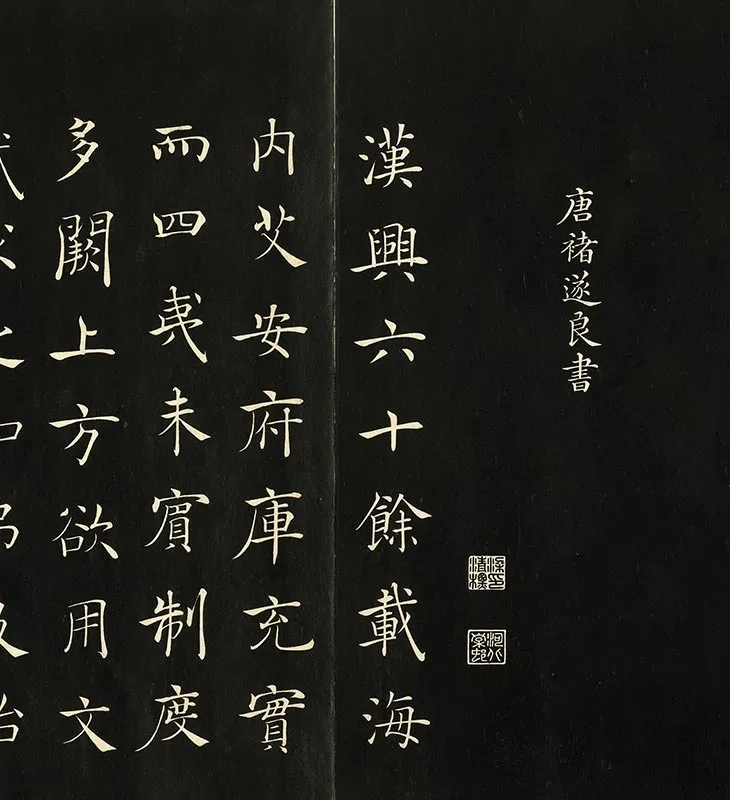 唐褚遂良書
漢興六十餘載海
内艾安府庫充實
而四夷未賓制度
多闕上方欲用文